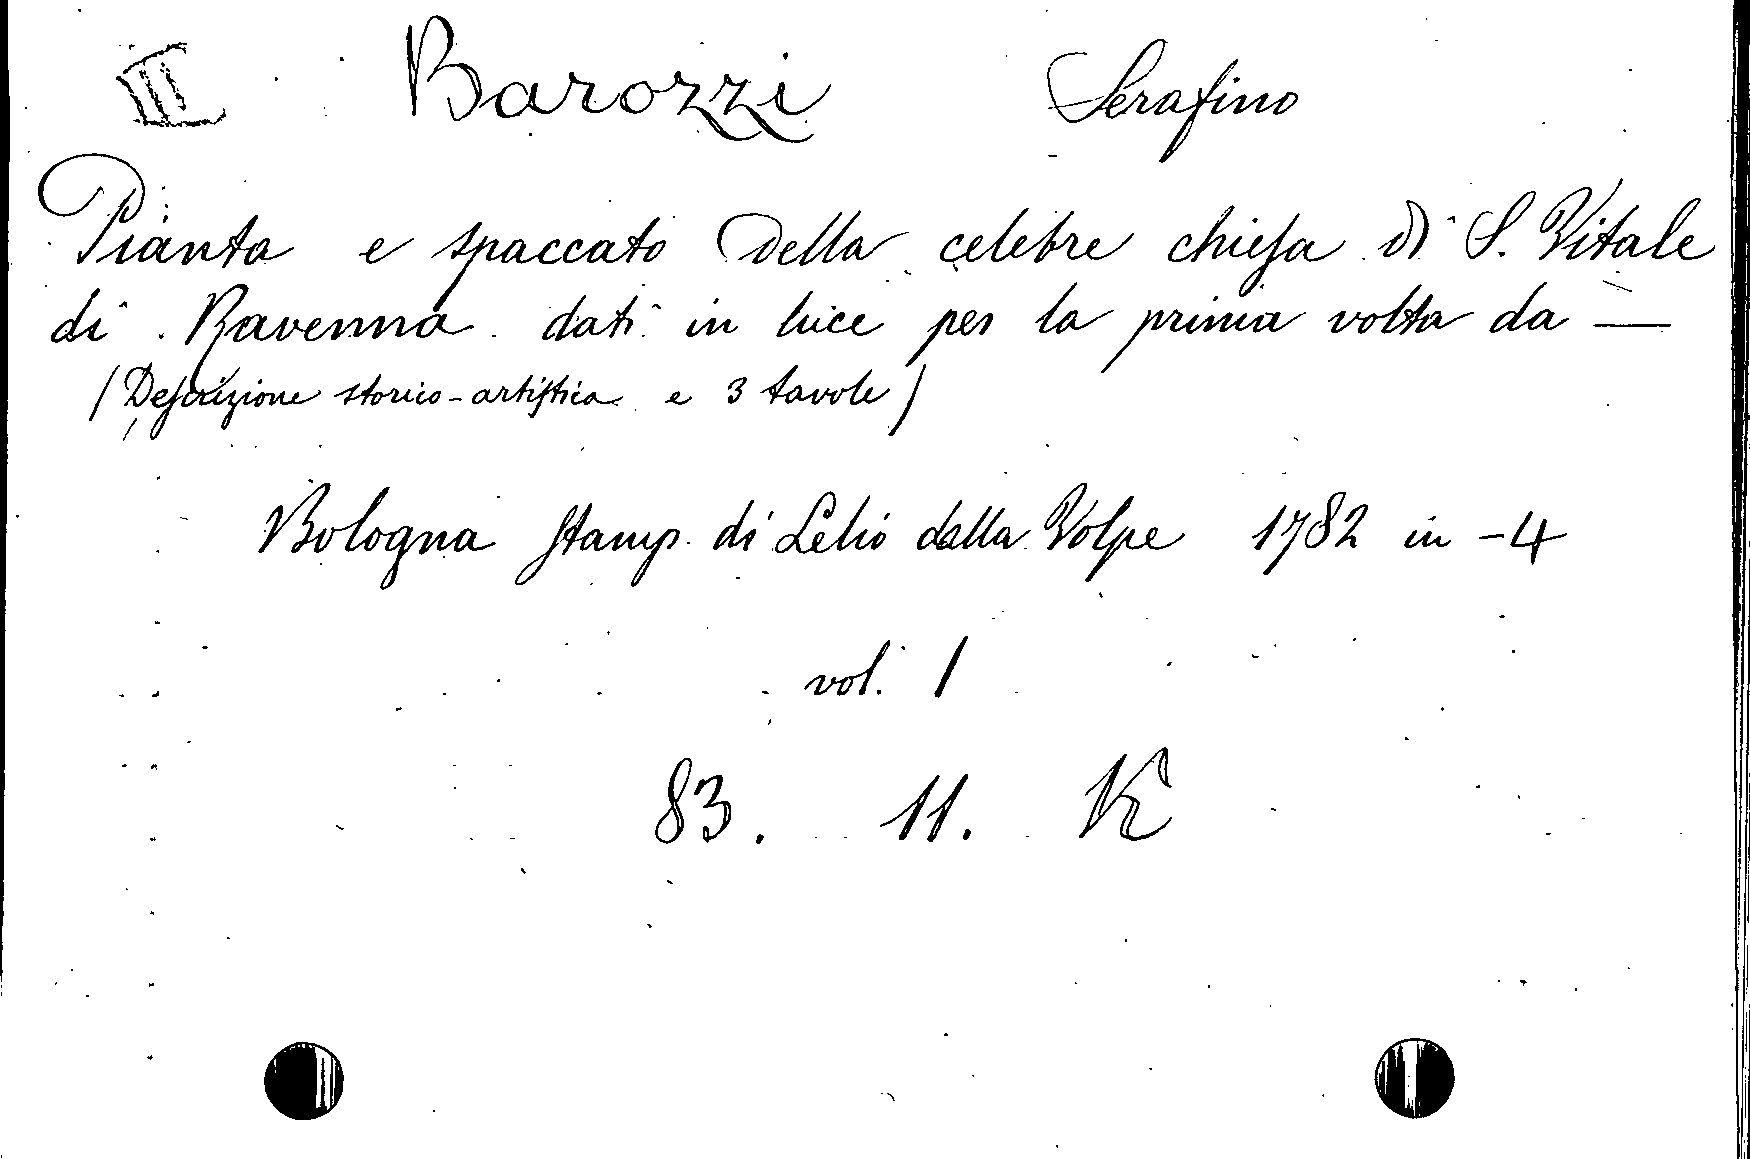 III Barozzi Serafino
Pianta e spaccato della celebre chiesa di S. Vitale
di Ravenna dati in luce per la prima volta da —
(Descrizione storico-artistica e 3 tavole)
Bologna Stamp. di Lelio dalla Volpe 1782 in-4
vol. 1
83. 11. K